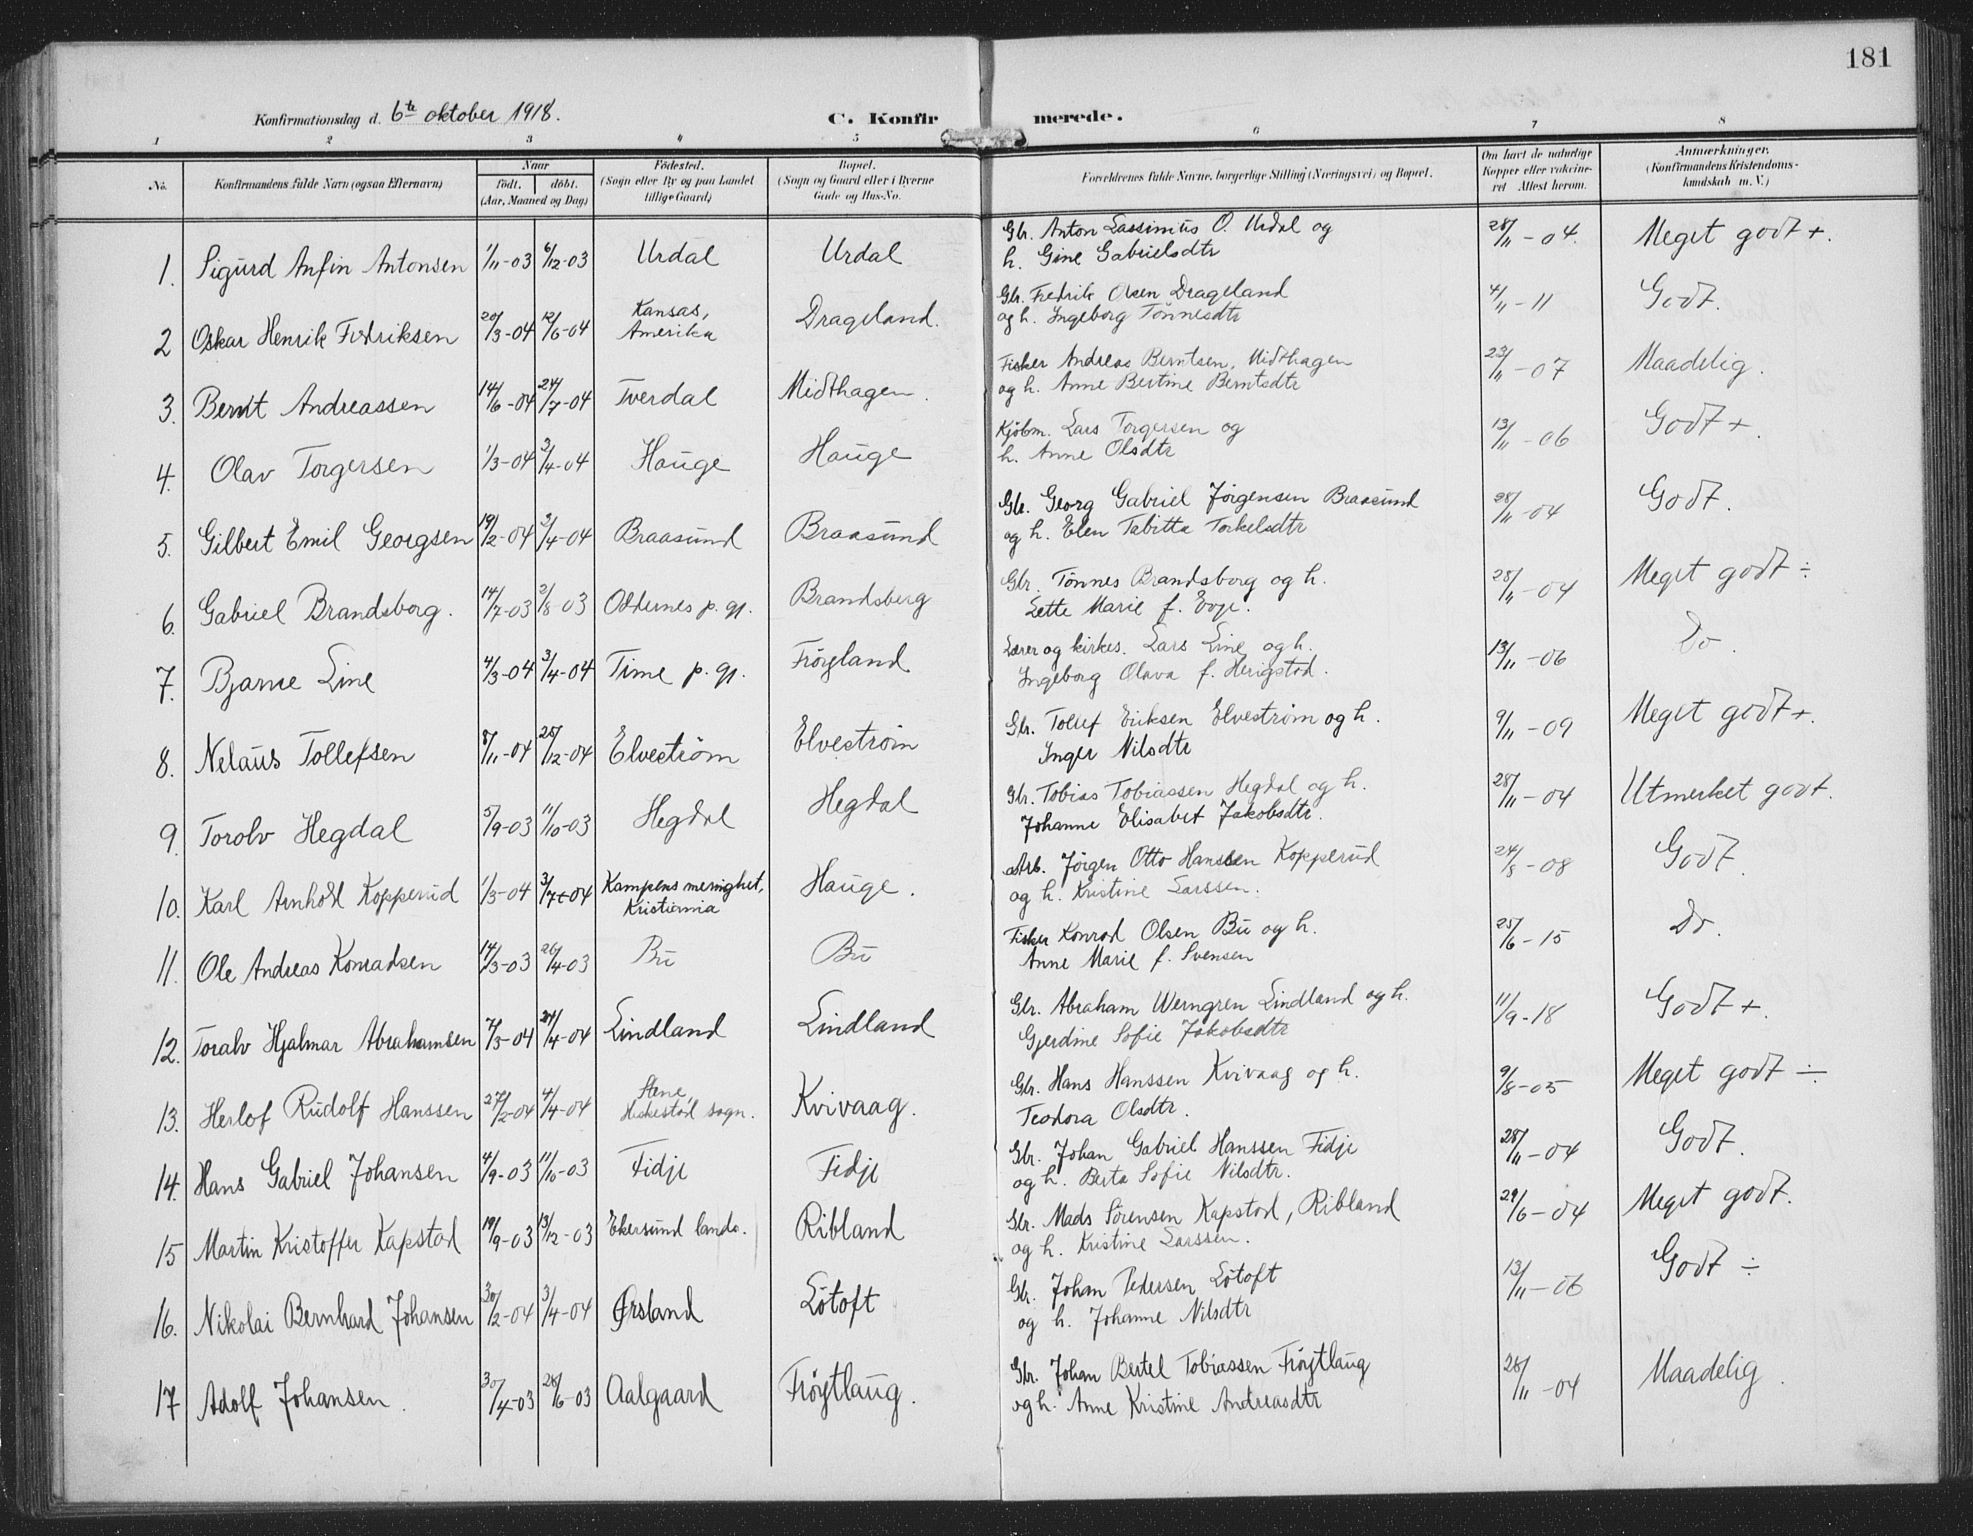 181
Konfirmationsdag d. 6te oktober 1918. C. Konfirmerede.
1 2 3 4 5 6 7 8
No. Konfirmandens fulde Navn (ogsaa Efternavn) Naar født. døbt. (Aar, Maaned og Dag) Fødested. (Sogn eller By og paa Landet tillige Gaard) Bopæl. (Sogn og Gaard eller i Byerne Gade og Hus-No. Forældrenes fulde Navne, borgerlige Stilling (Næringsvei) og Bopæl. Om havt de naturlige Kopper eller vakcineret Attest herom. Anmærkninger. (Konfirmandens Kristendomskundskab m. V.)
1. Sigurd Anfin Antonsen 1/11-03 6/12-03 Urdal Urdal Gbr. Anton Lassimius O. Urdal og h. Gine Gabrielsdtr 28/11-04. Meget godt +.
2 Oskar Henrik Fredriksen 20/3-04 12/6-04 Kansas, Amerika Drageland. Gbr. Fredrik Olsen Drageland og h. Ingeborg Tønnesdtr 4/11-11 Godt.
3. Berndt Andreassen 14/6-04 24/7-04 Tverdal Midthagen. Fisker Andreas Berntsen, Midthagen og h. Anne Bertine Berntsdtr 23/11-07 Maadelig.
4. Olav Torgersen 1/3-04 3/4-04 Hauge Hauge Kjøbm. Lars Torgersen og h. Anne Olsdtr 13/11-06 Godt +.
5. Gilbert Emil Georgsen 19/2-04 3/4-04 Braasund Braasund Gbr. Georg Gabriel Jørgensen Braasund og h. Elen Tabitta Torkelsdtr 28/11-04 Godt.
6. Gabriel Brandsborg. 14/7-03 2/8-03 Oddernes p. gj. Brandsberg Gbr. Tønnes Brandsborg og h. Lette Marie f. Evje. 28/11-04 Meget godt ÷
7. Bjarne Line 4/3-04 3/4-04 Time p. gj. Frøyland Lærer og kirkes. Lars Line og h. Ingeborg Olava f. Herigstad. 13/11-06 Do.
8. Nelaus Tollefsen 8/11-04 28/12-04 Elvestrøm Elvestrøm Gbr. Tollef Eriksen Elvestrøm og h. Inger Nilsdtr 9/11-09 Meget godt +.
9. Torolv Hegdal 5/9-03 11/10-03 Hegdal Hegdal Gbr. Tobias Tobiassen Hegdal og h. Johanne Elisabet Jakobsdtr. 28/11-04 Utmerket godt.
10. Karl Arnhold Kopperud 1/3-04 3/7-04 Kampens menighet, Kristiania Hauge. Arb. Jørgen Otto Hanssen Kopperud og h. Kristine Larssen. 24/8-08 Godt
11. Ole Andreas Konradsen 14/3-03 26/4-03 Bu Bu Fisker Konrad Olsen Bu og h. Anne Marie f. Svensen 25/6-15 Do.
12. Toralv Hjalmar Abrahamsen 7/3-04 24/4-04 Lindland Lindland Gbr. Abraham Werngren Lindland og h. Gjerdine Sofie Jakobsdtr 11/9-18 Godt +.
13. Herlof Rudolf Hanssen 27/2-04 4/4-04 Stene, Heskestad sogn. Kvivaag. Gbr. Hans Hanssen Kvivaag og h. Teodora Olsdtr. 9/8-05 Meget godt ÷
14. Hans Gabriel Johansen 4/9-03 11/10-03 Fidje Fidje Gbr. Johan Gabriel Hanssen Fidje og h. Berta Sofie Nilsdtr. 28/11-04 Godt.
15 Martin Kristoffer Kapstad 19/9-03 13/12-03 Ekersund lands. Ribland Gbr. Mads Sørensen Kapstad, Ribland og h. Kristine Larssen. 29/6-04 Meget godt.
16. Nikolai Bernhard Johansen 30/2-04 3/4-04 Ørsland Løtoft Gbr. Johan Pedersen Løtoft og h. Johanne Nilsdtr 13/11-06 Godt ÷
17 Adolf Johansen. 30/4-03 28/6-03 Aalgaard Frøytlaug. Gbr. Johan Bertel Tobiassen Frøytlaug og h. Anne Kristine Andreasdtr 28/11-04 Maadelig.